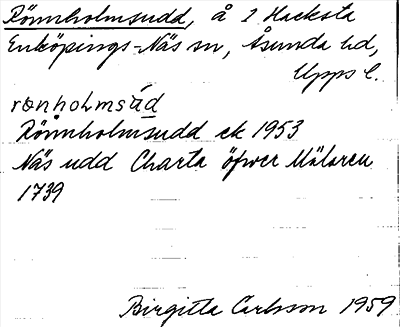 Rönnholmsudd, å 2 Hacksta
Enköpings-Näs sn, Åsunda hd,
Upps l.
rønholmsåd
Rönnholmsudd ek 1953
Näs udd Charta öfwer Mälaren
1739
Birgitta Carlsson 1959